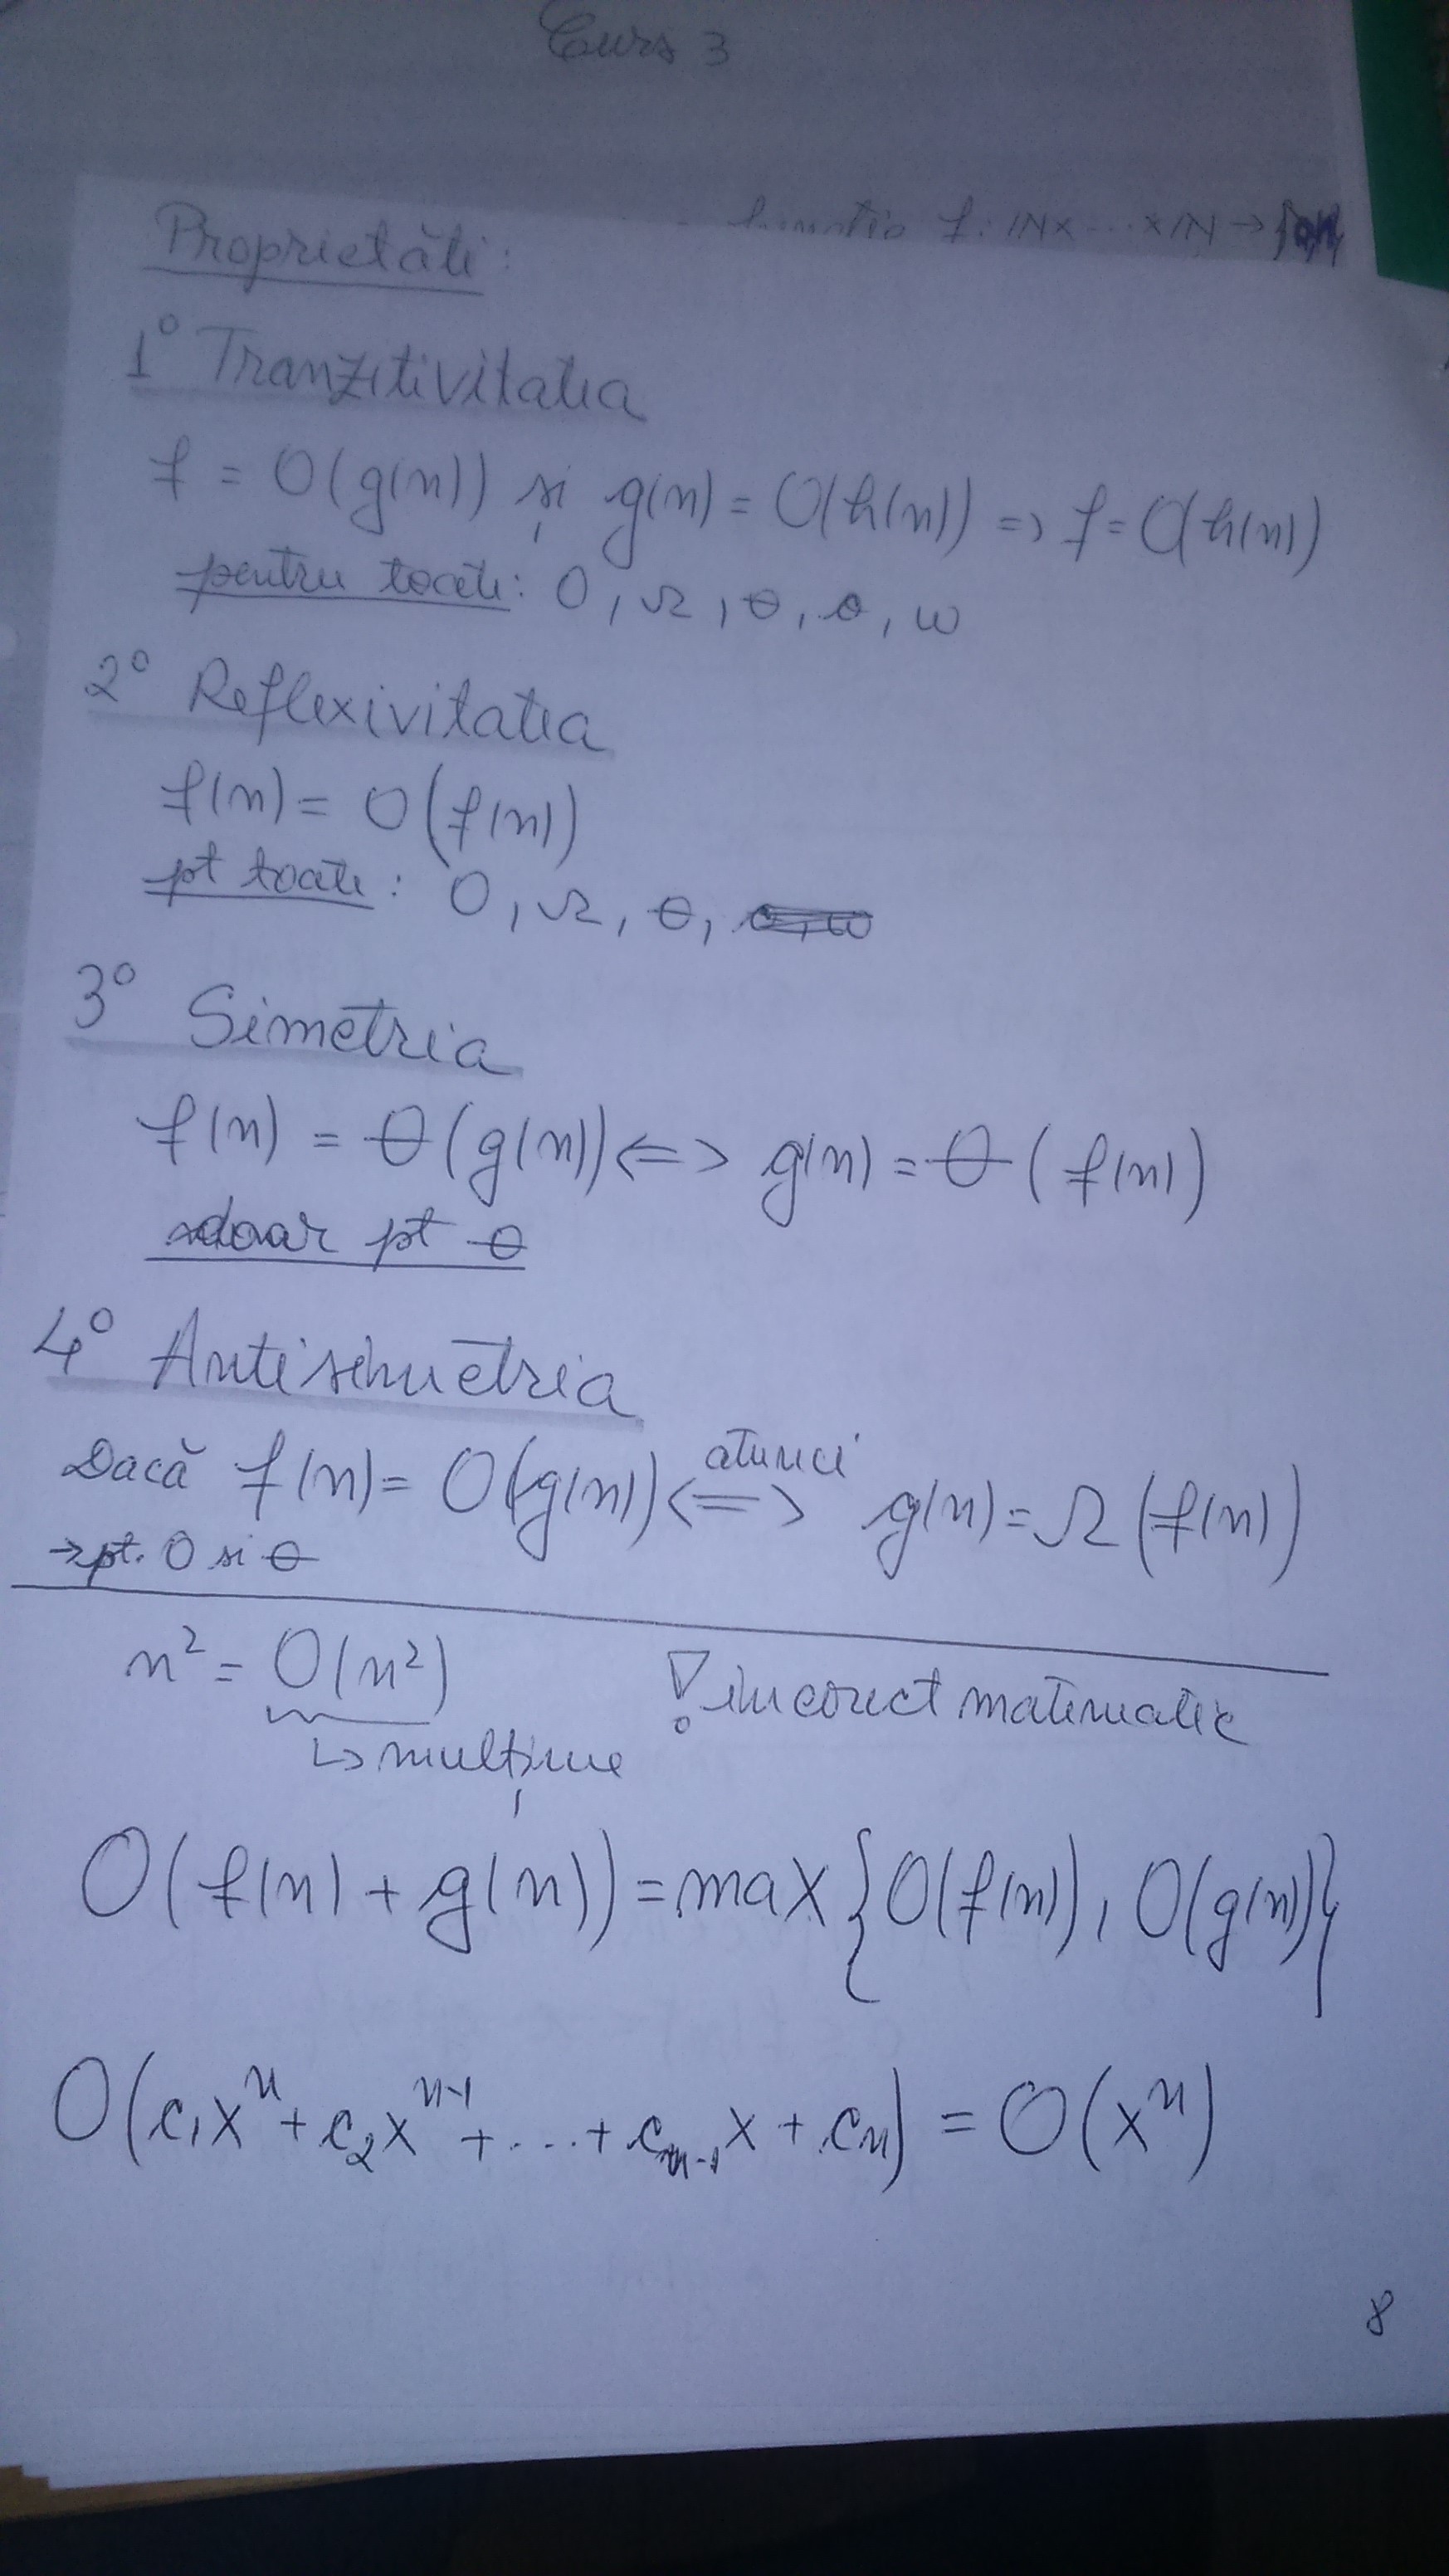 Curs 3
funcție f: ℕx...xℕ →
Proprietăți:
1° Tranzitivitatea
f = O(g(n)) și g(n) = O(h(n)) => f = O(h(n))
pentru toate: O, Ω, θ, o, ω
2° Reflexivitatea
f(n) = O(f(n))
pt toate: O, Ω, θ,
3° Simetria
f(n) = θ(g(n)) <=> g(n) = θ(f(n))
doar pt θ
4° Antisimetria
atunci
Dacă f(n) = O(g(n)) <=> g(n) = Ω(f(n))
→ pt. O si θ
n² = O(n²) ! incorect matematic
↳ mulțime
O(f(n) + g(n)) = max{O(f(n)), O(g(n))}
O(c₁xⁿ + c₂xⁿ⁻¹ + ... + cₙ₋₁x + cₙ) = O(xⁿ)
8